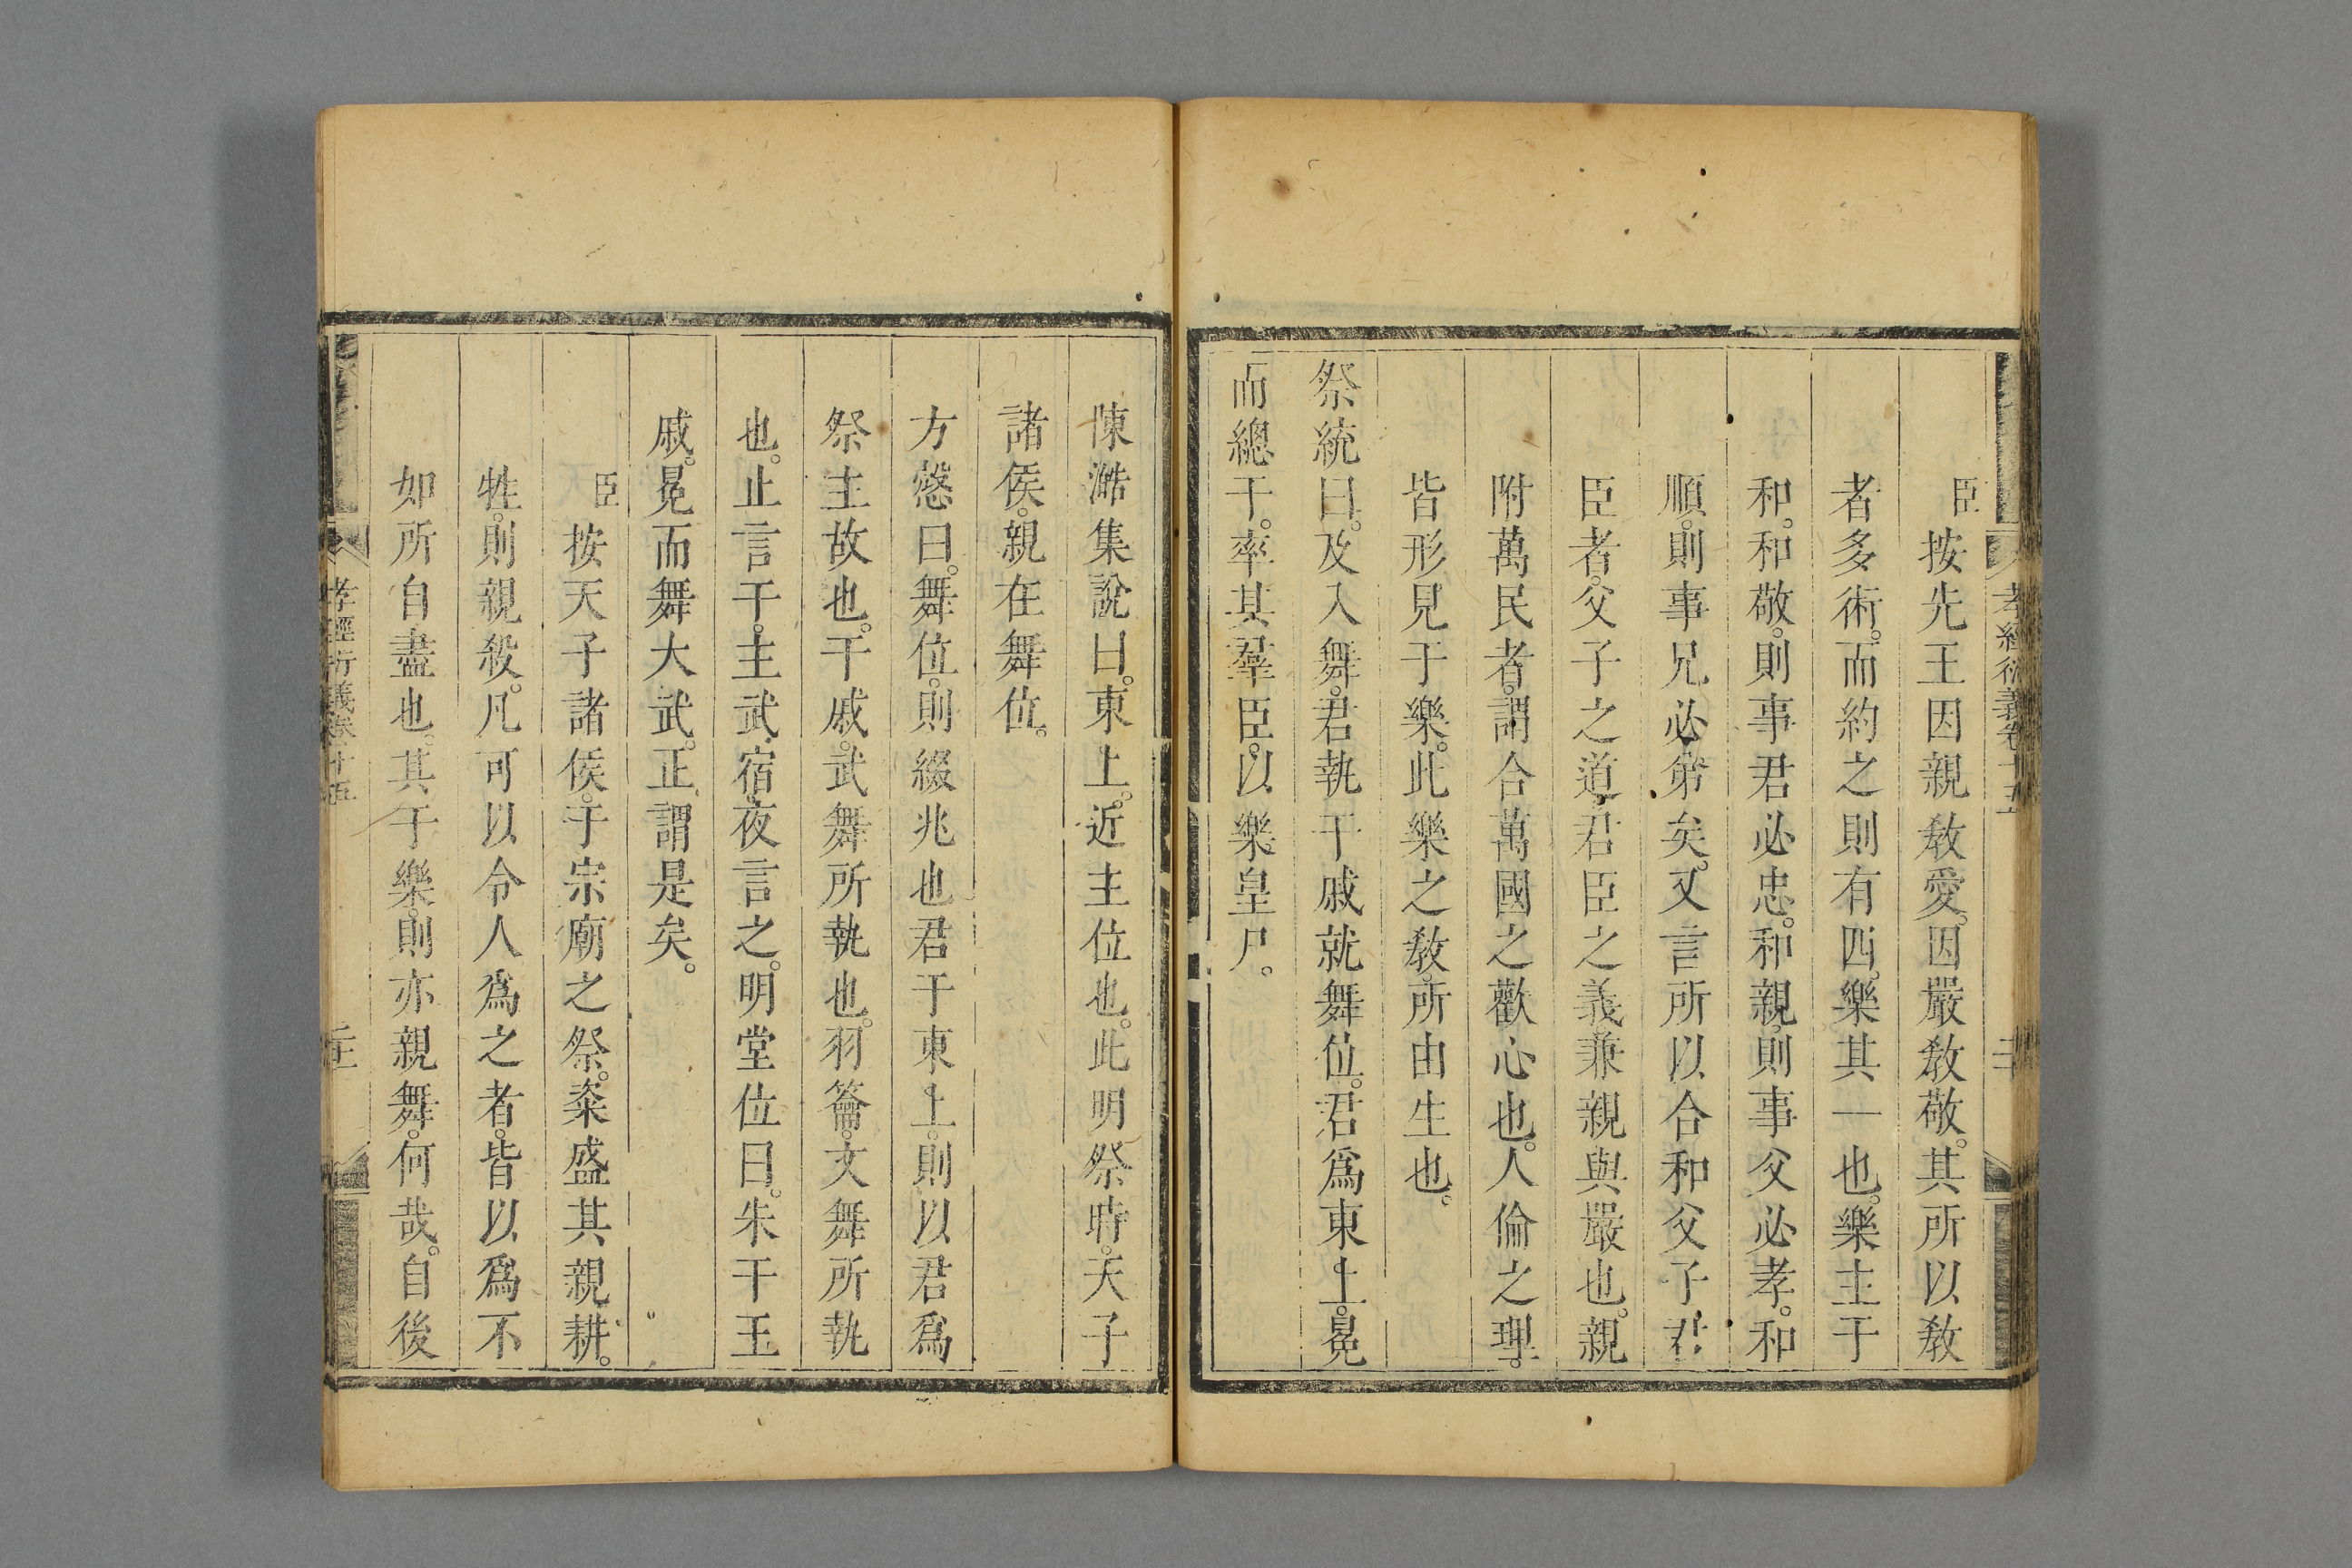 孝經衍義卷十五
二十
臣按先王因親敎愛。因嚴敎敬。其所以敎
者多術。而約之則有四。樂其一也。樂主于
和。和敬。則事君必忠。和親。則事父必孝。和
順。則事兄必弟矣。又言所以合和父子君
臣者。父子之道。君臣之義。兼親與嚴也。親
附萬民者。謂合萬國之歡心也。人倫之理。
皆形見于樂。此樂之敎。所由生也。
祭統曰。及入舞。君執干戚就舞位。君爲東上。冕
而總干。率其羣臣。以樂皇尸。
陳澔集說曰。東上。近主位也。此明祭時。天子
諸侯。親在舞位。
方慤曰。舞位。則綴兆也君于東上。則以君爲
祭主故也。干戚。武舞所執也。羽籥。文舞所執
也。止言干。主武宿夜言之。明堂位曰。朱干玉
戚。冕而舞大武。正謂是矣。
臣按天子諸侯。于宗廟之祭。粢盛其親耕。
牲。則親殺。凡可以令人爲之者。皆以爲不
如所自盡也。其于樂。則亦親舞。何哉。自後
孝經衍義卷十五